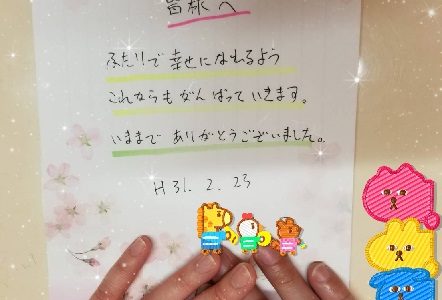 皆様へ
ふたりで幸せになれるよう
これからもがんばっていきます。
いままでありがとうございました。
H31.2.23